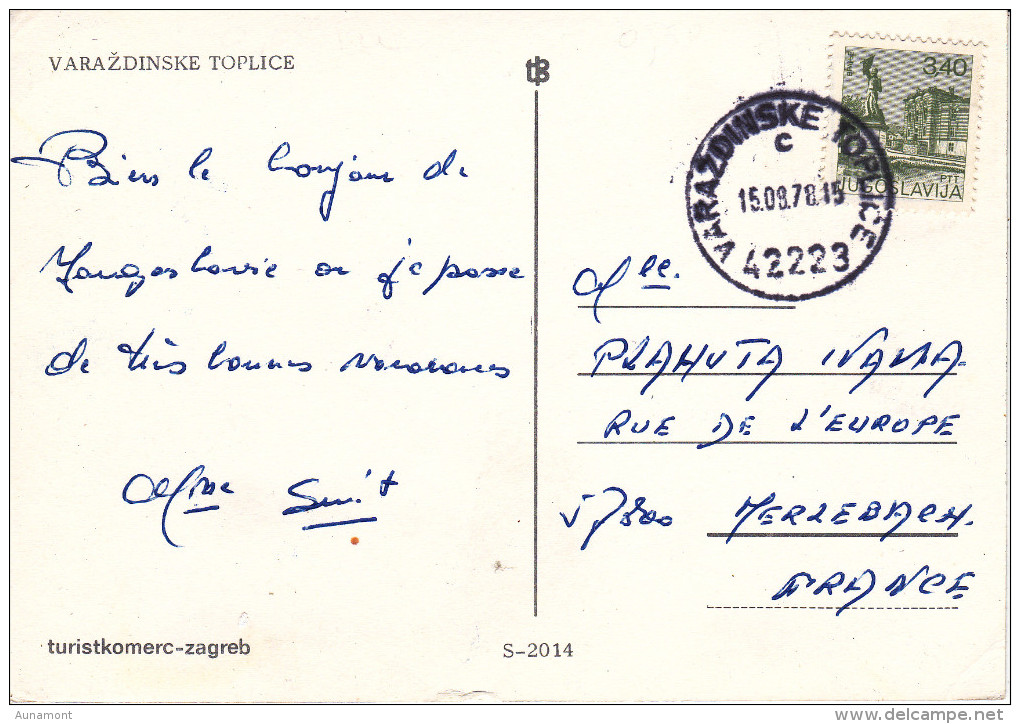 VARAŽDINSKE TOPLICE
Bien le bonjour de
Yougoslavie ou je passe
de très bonnes vacances
Mme Smit
turistkomerc-zagreb
S-2014
3,40
PTT
JUGOSLAVIJA
VARAŽDINSKE TOPLICE
C
15.08.78.15
42223
Mlle.
PLAHUTA IVANA
RUE DE L'EUROPE
57800 MERLEBACH.
FRANCE
Aunamont
delcampe.net